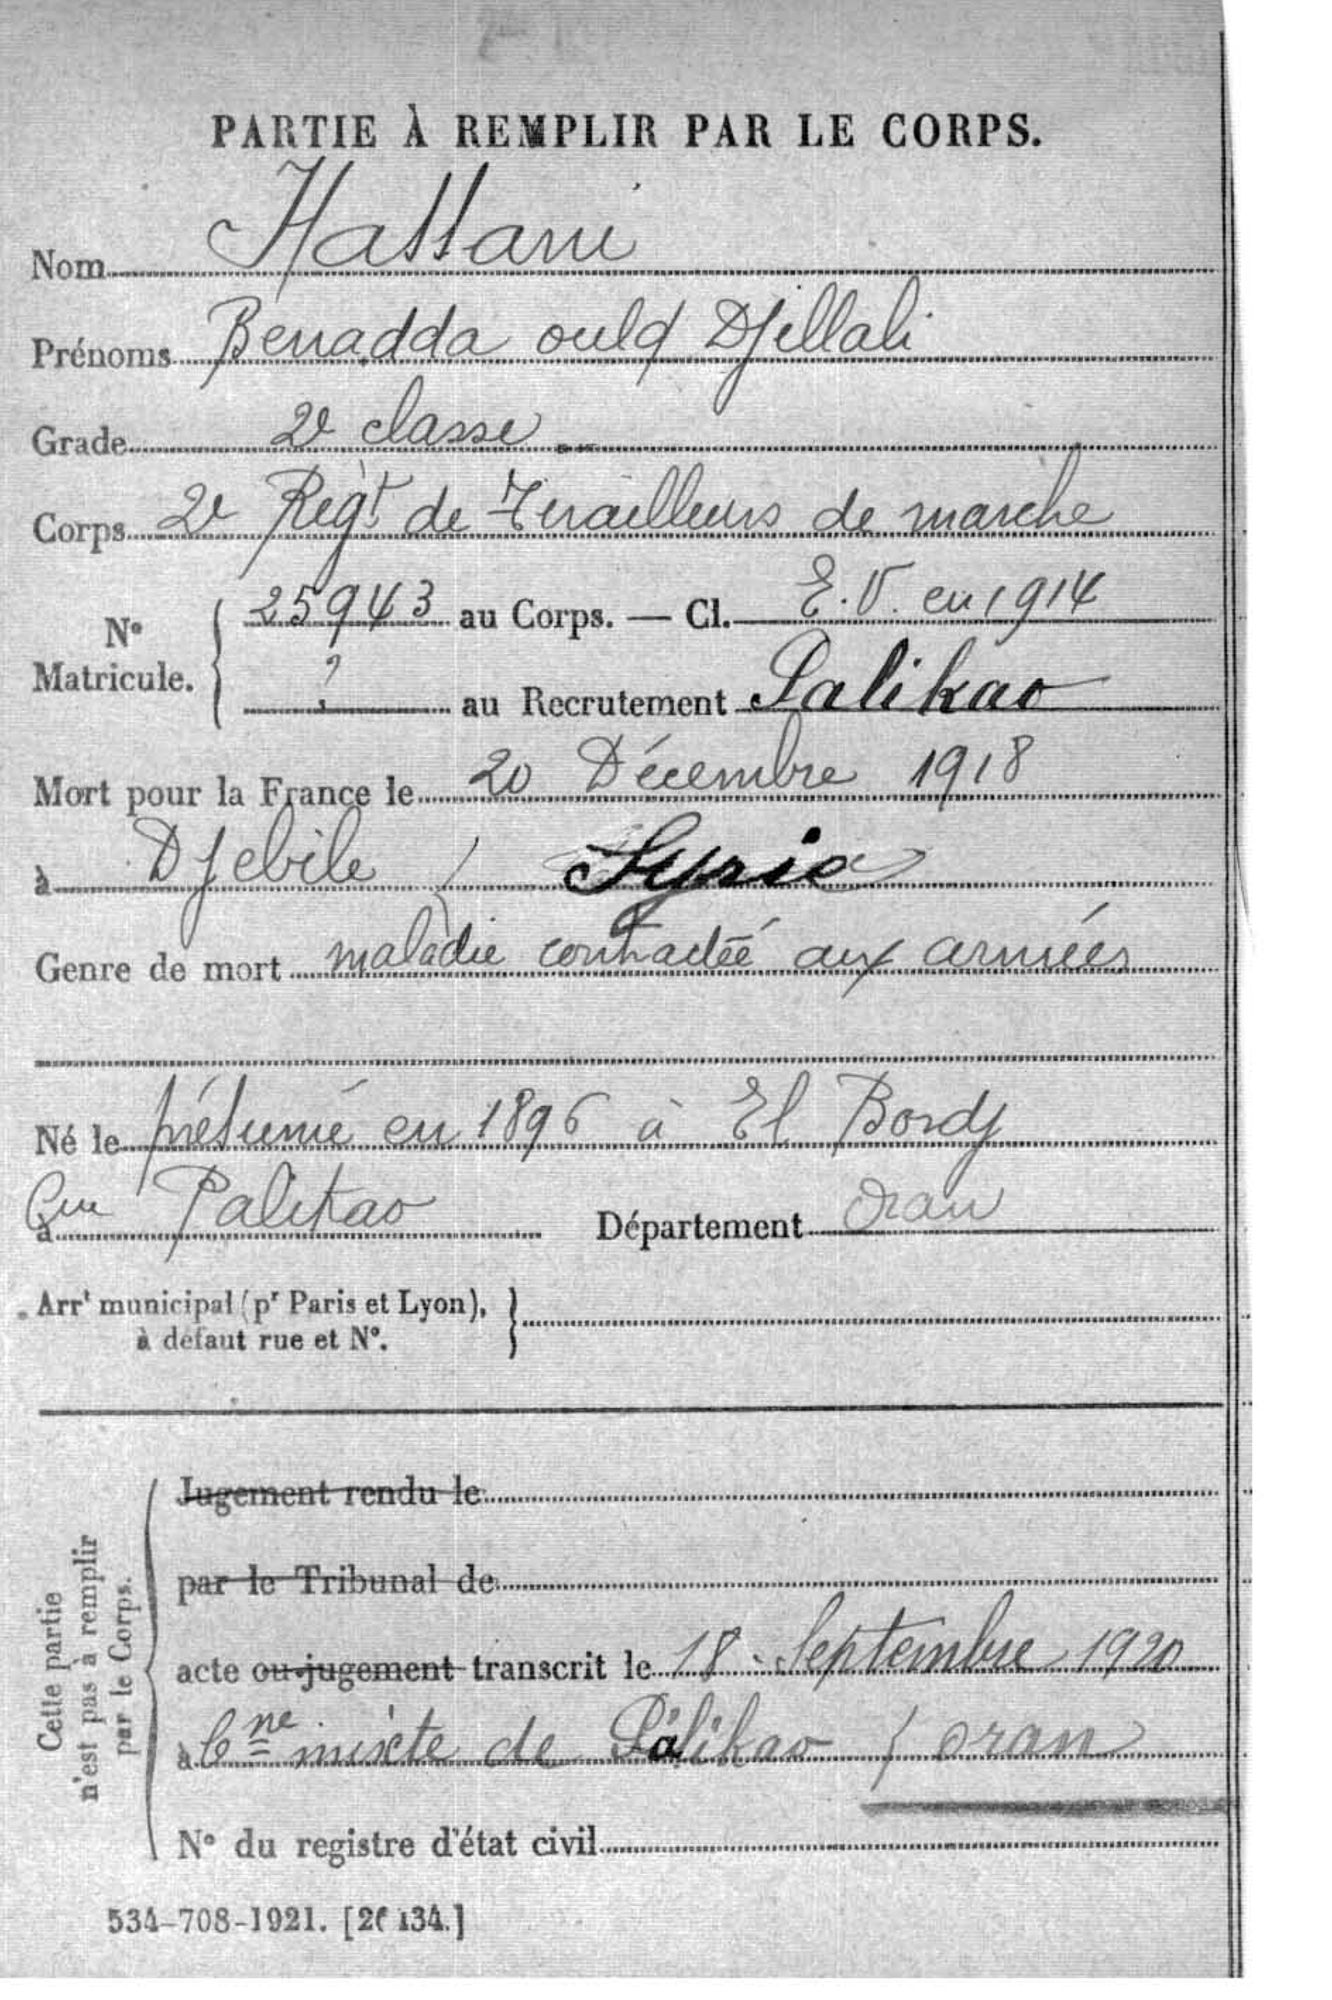 PARTIE À REMPLIR PAR LE CORPS.
Nom Hassani
Prénoms Benadda ould Djellali
Grade 2e classe
Corps 2e Régt de Tirailleurs de marche
N° Matricule. { 25943 au Corps. — Cl. E.V. en 1914
? au Recrutement Palikao
Mort pour la France le 20 Décembre 1918
à Djebile / Syrie
Genre de mort maladie contractée aux armées
Né le présumé en 1896 à El Bordj
à Palikao Département Oran
Arrt municipal (pr Paris et Lyon), }
à défaut rue et N°.
Cette partie
n'est pas à remplir
par le Corps.
Jugement rendu le
par le Tribunal de
acte ou jugement transcrit le 18 Septembre 1920
à Cne mixte de Palikao / Oran
N° du registre d'état civil
534-708-1921. [26134.]